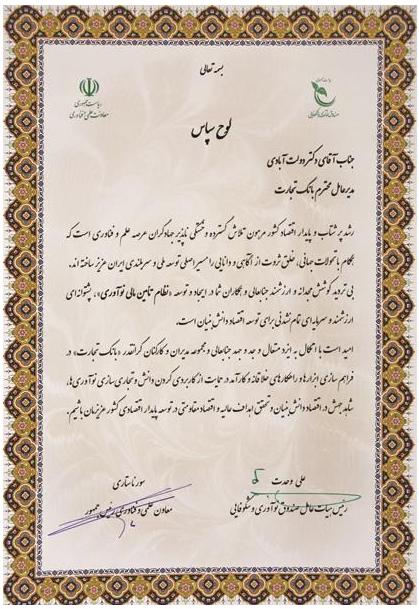 بسمه تعالی
ریاست جمهوری
صندوق نوآوری و شکوفایی
ریاست جمهوری
معاونت علمی و فناوری
لوح سپاس
جناب آقای دکتر دولت آبادی
مدیرعامل محترم بانک تجارت
رشد پر شتاب و پایدار اقتصاد کشور مرهون تلاش گسترده و خستگی ناپذیر جهادگران عرصه علم و فناوری است که
همگام با تحولات جهانی، خلق ثروت از آگاهی و دانایی را مسیر اصلی توسعه ملی و سربلندی ایران عزیز ساخته اند.
بی تردید کوشش مجدانه و ارزشمند جنابعالی و همکاران شما در ایجاد و توسعه «نظام تأمین مالی نوآوری»، پشتوانه ای
ارزشمند و سرمایه ای تمام نشدنی برای توسعه اقتصاد دانش بنیان است.
امید است با اتکال به ایزد متعال و جد و جهد جنابعالی و مجموعه مدیران و کارکنان گرانقدر «بانک تجارت» در
فراهم سازی ابزارها و راهکارهای خلاقانه و کارآمد در حمایت از کاربردی کردن دانش و تجاری سازی نوآوری ها،
شاهد جهش در اقتصاد دانش بنیان و تحقق اهداف عالیه و اقتصاد مقاومتی در توسعه پایدار اقتصادی کشور عزیزمان باشیم.
علی وحدت
رئیس هیات عامل صندوق نوآوری و شکوفایی
سورنا ستاری
معاون علمی و فناوری رئیس جمهور